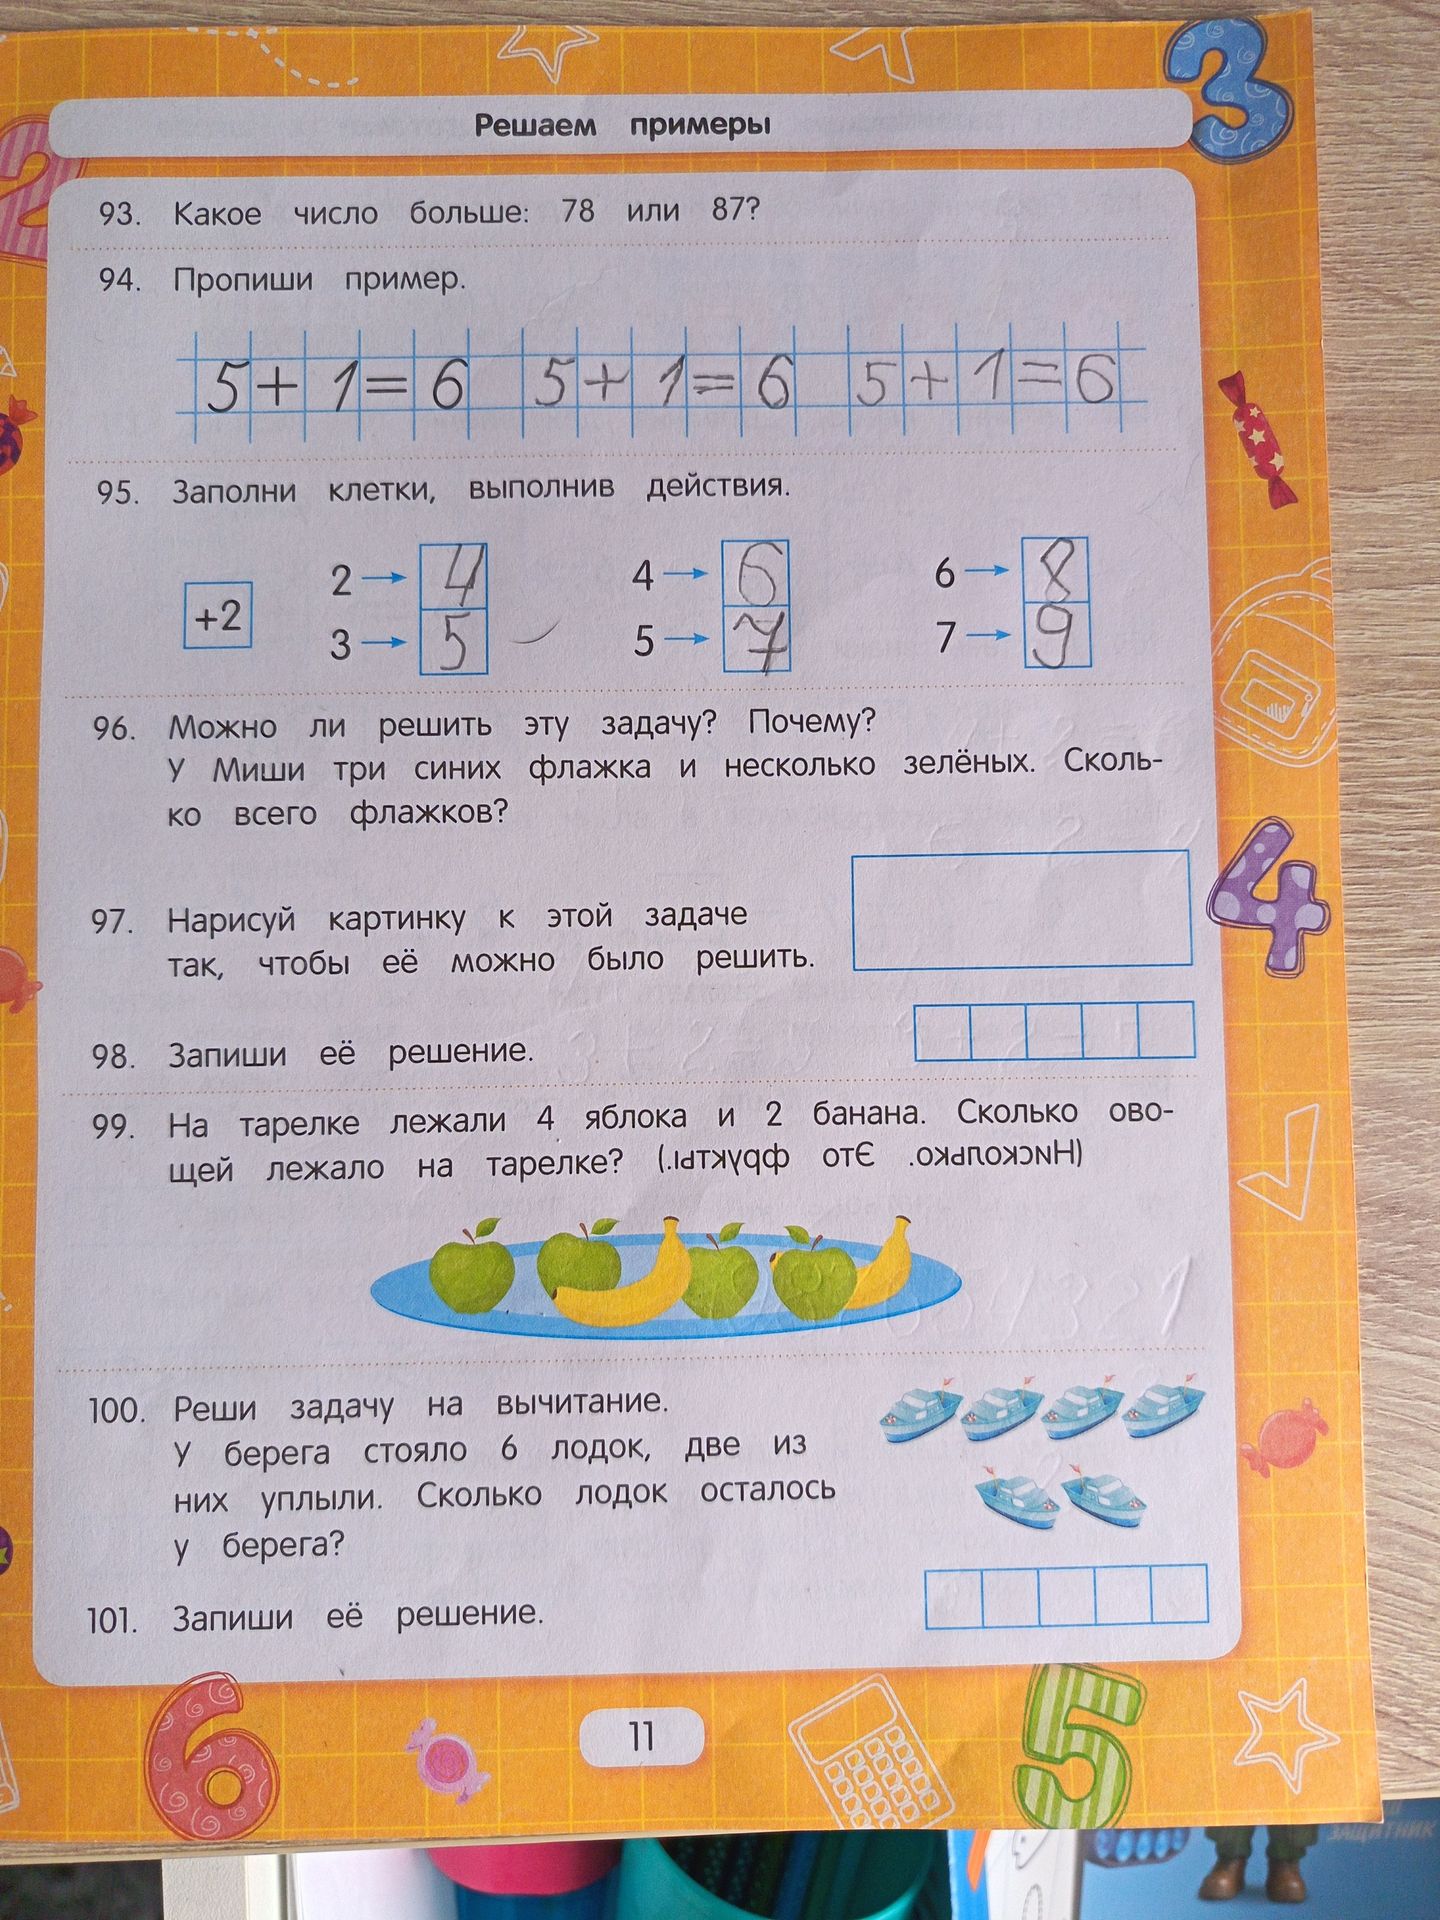 Решаем примеры
93. Какое число больше: 78 или 87?
94. Пропиши пример.
5 + 1 = 6 5 + 1 = 6 5 + 1 = 6
95. Заполни клетки, выполнив действия.
2 → 4 4 → 6 6 → 8
+2
3 → 5 5 → 7 7 → 9
96. Можно ли решить эту задачу? Почему?
У Миши три синих флажка и несколько зелёных. Сколь-
ко всего флажков?
97. Нарисуй картинку к этой задаче
так, чтобы её можно было решить.
98. Запиши её решение.
99. На тарелке лежали 4 яблока и 2 банана. Сколько ово-
щей лежало на тарелке? (Нисколько. Это фрукты.)
100. Реши задачу на вычитание.
У берега стояло 6 лодок, две из
них уплыли. Сколько лодок осталось
у берега?
101. Запиши её решение.
11
ЗАЩИТНИК